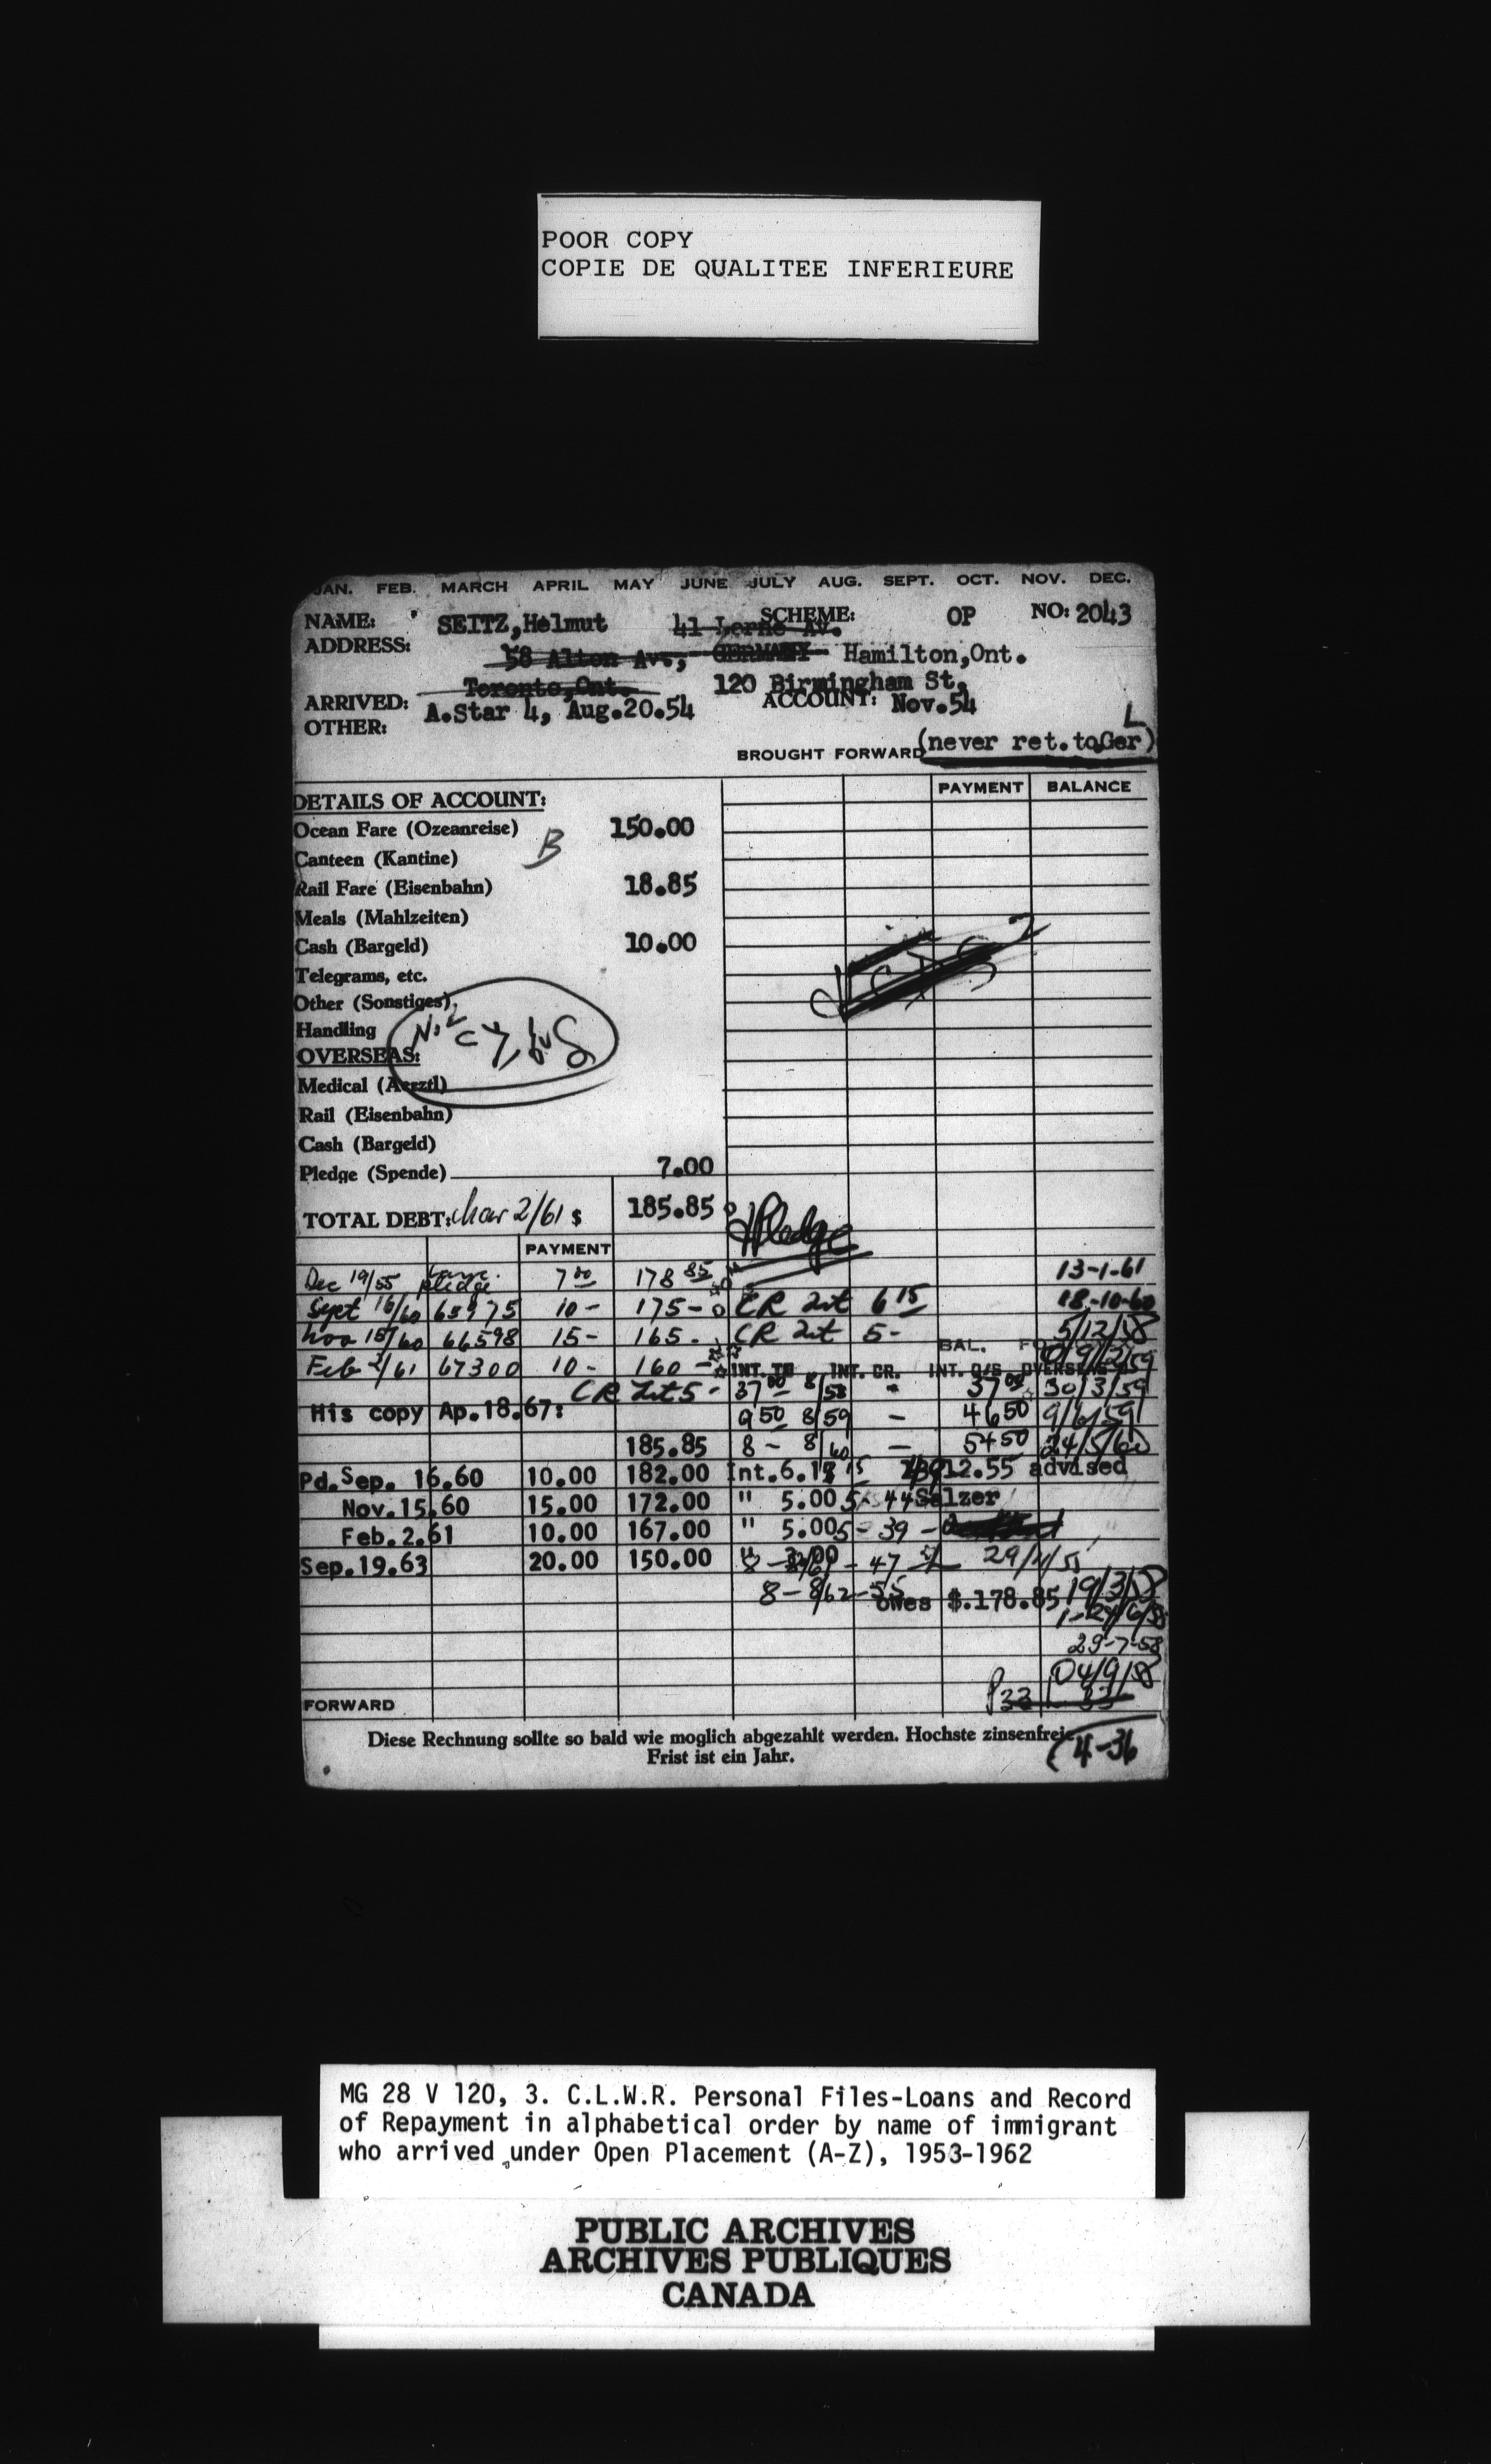 POOR COPY
COPIE DE QUALITEE INFERIEURE
JAN. FEB. MARCH APRIL MAY JUNE JULY AUG. SEPT. OCT. NOV. DEC.
NAME: SEITZ,Helmut 41 Lorne Av. SCHEME: OP NO: 2043
ADDRESS: 58 Alton Av., GERMANY Hamilton,Ont.
Toronto,Ont. 120 Birmingham St,
ARRIVED: A.Star 4, Aug.20.54 ACCOUNT: Nov.54
OTHER:
BROUGHT FORWARD (never ret.to Ger) L
PAYMENT BALANCE
DETAILS OF ACCOUNT:
Ocean Fare (Ozeanreise) 150.00
Canteen (Kantine) B
Rail Fare (Eisenbahn) 18.85
Meals (Mahlzeiten)
Cash (Bargeld) 10.00
Telegrams, etc.
Other (Sonstiges)
Handling
OVERSEAS:
Medical (Aerztl)
Rail (Eisenbahn)
Cash (Bargeld)
Pledge (Spende) 7.00
TOTAL DEBT: Mar 2/61 $ 185.85 Pledge
PAYMENT
Dec 19/55 pledge 7 00 178 85 13-1-61
Sept 16/60 65975 10- 175- CR Int 6 15 18-10-60
Nov 15/60 66598 15- 165- CR Int 5- 5/12/58
BAL.
Feb 2/61 67300 10- 160- INT. TO INT. CR. INT. O/S OVERSEAS
CR Int 5- 37 00 8/58 - 37 00 30/3/59
His copy Ap.18.67: 9 50 8/59 - 46 50 9/6/59
185.85 8- 8/60 - 54 50 24/5/60
Pd. Sep. 16.60 10.00 182.00 Int.6.15 12.55 advised
Nov.15.60 15.00 172.00 " 5.00 5- 44 Salzer
Feb.2.61 10.00 167.00 " 5.00 5- 39-
Sep.19.63 20.00 150.00 " 8- 8/61 - 47 29/4/55
8- 8/62-55 owes $.178.85 19/3/58
1-24/6/58
29-7-58
04/9/58
P33 33
FORWARD
Diese Rechnung sollte so bald wie moglich abgezahlt werden. Hochste zinsenfreie
Frist ist ein Jahr.
4-36
MG 28 V 120, 3. C.L.W.R. Personal Files-Loans and Record
of Repayment in alphabetical order by name of immigrant
who arrived under Open Placement (A-Z), 1953-1962
PUBLIC ARCHIVES
ARCHIVES PUBLIQUES
CANADA